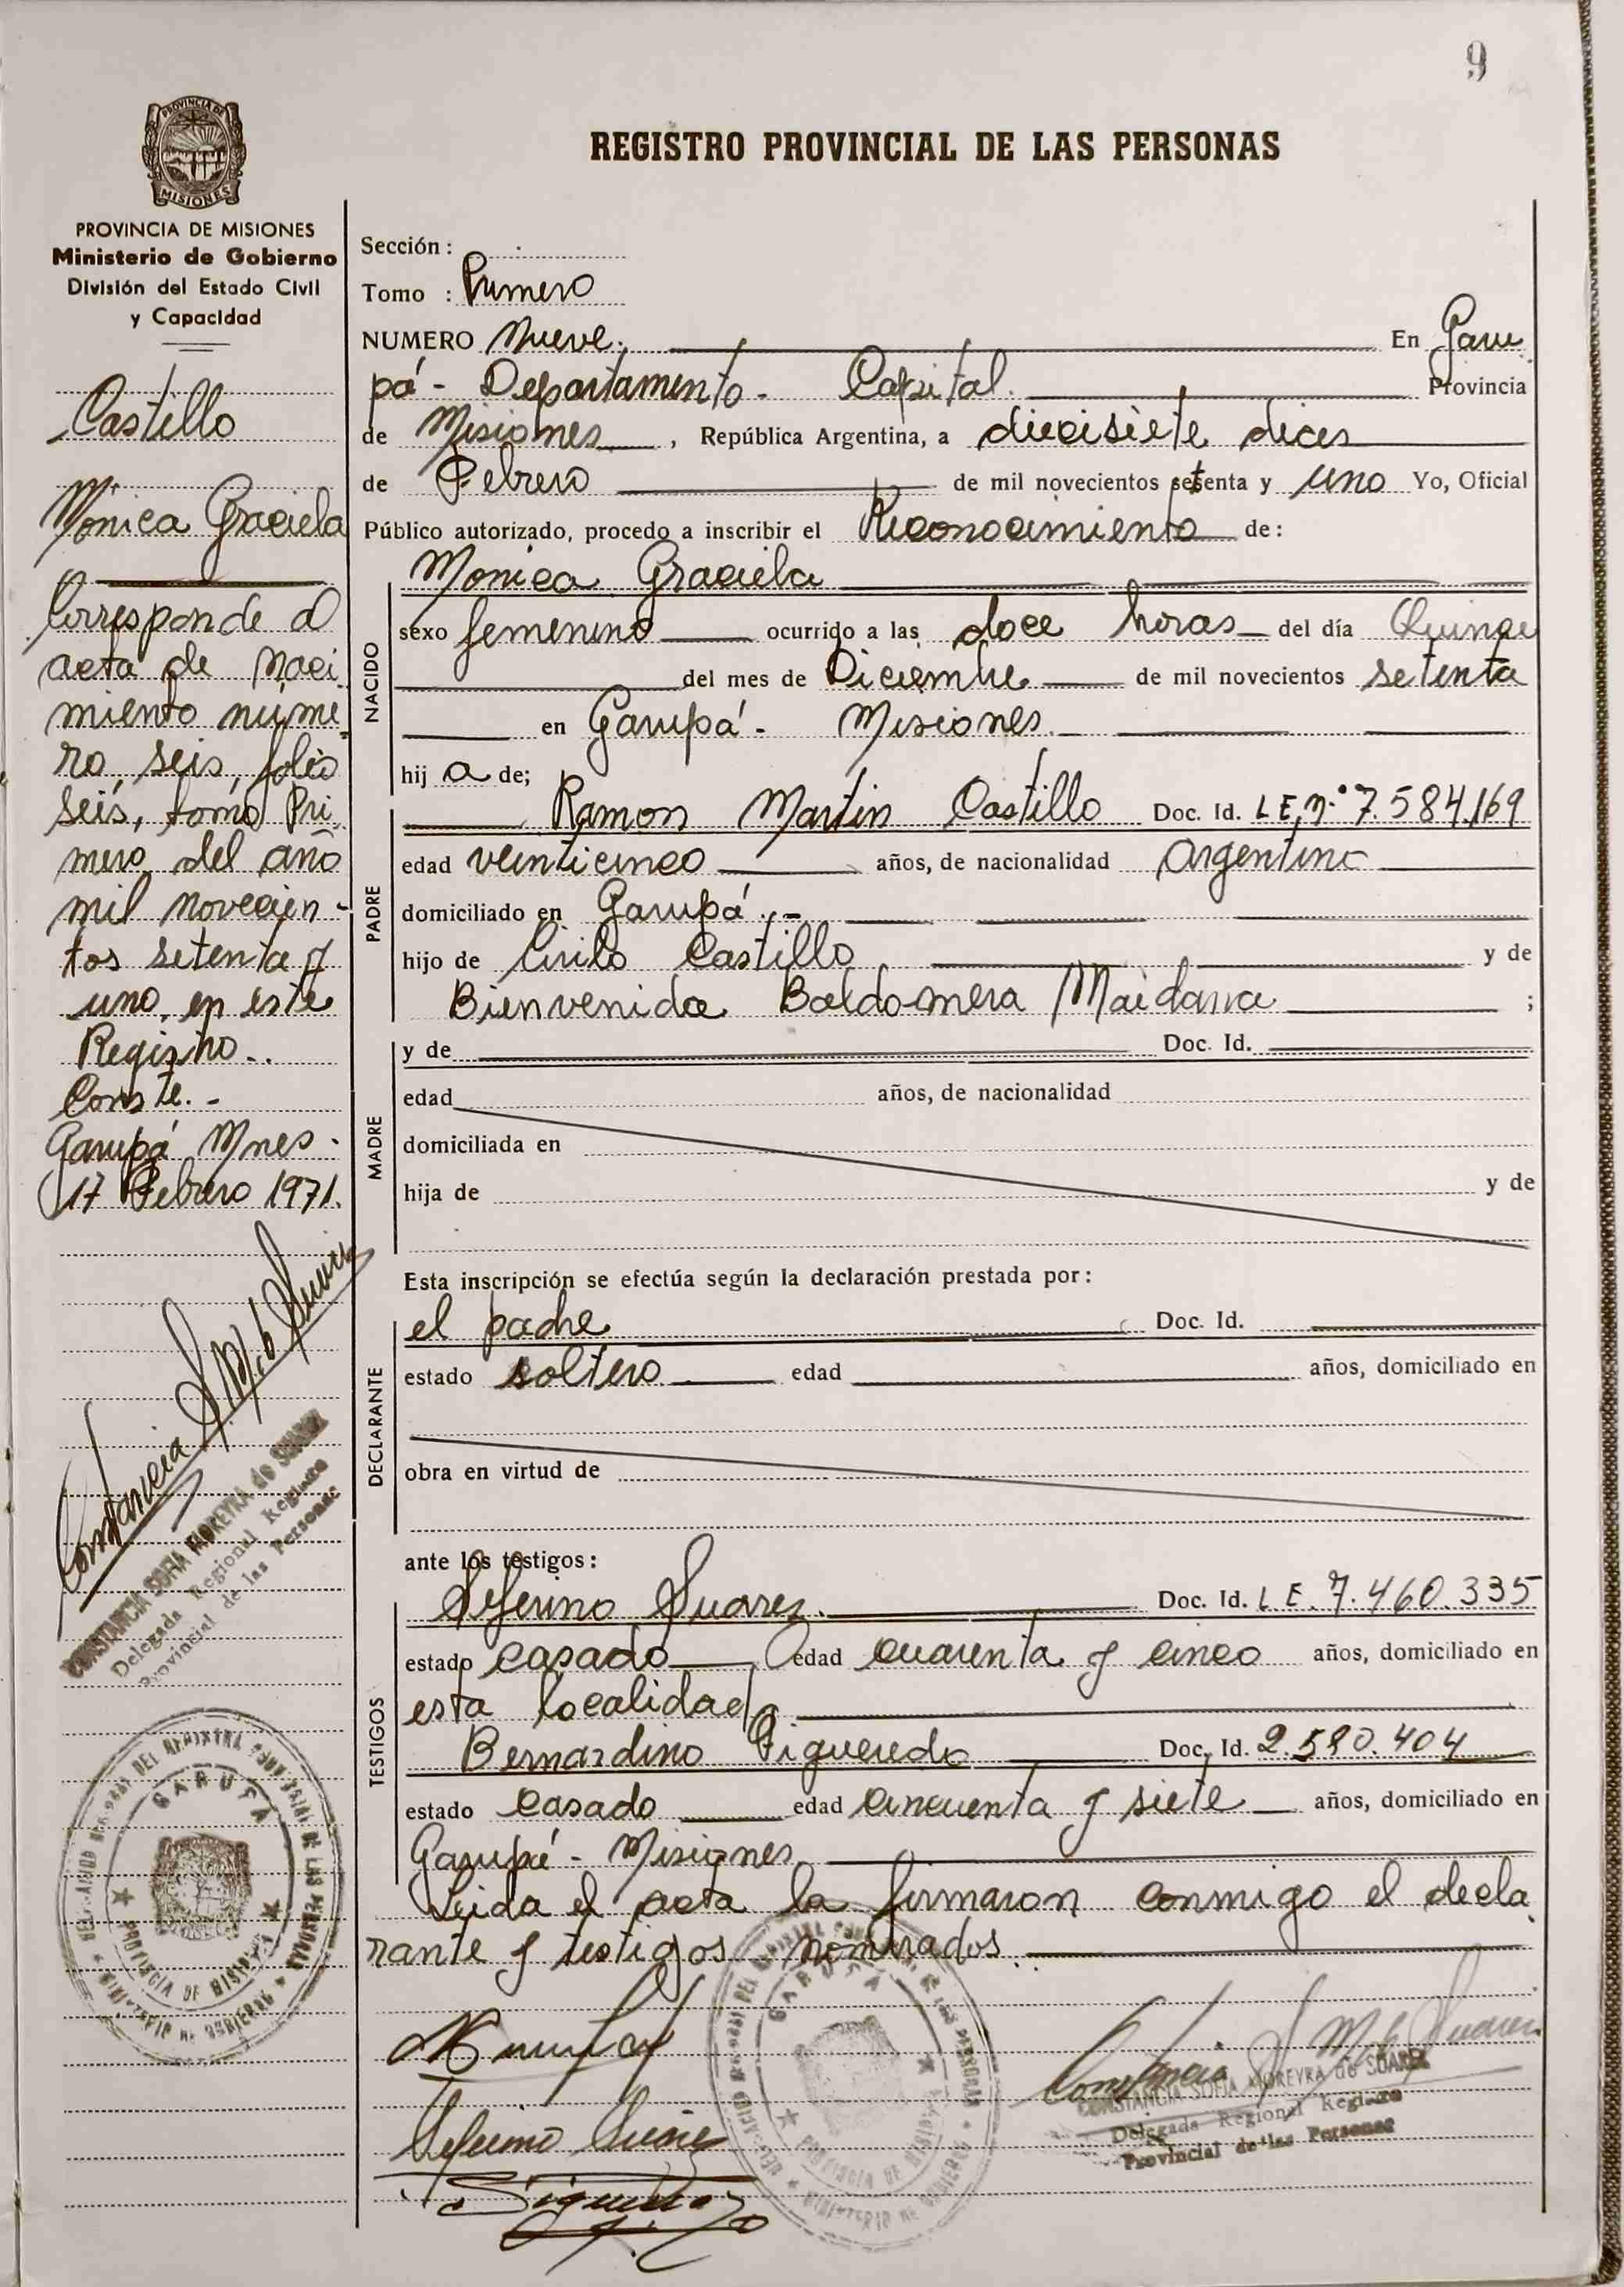 9
PROVINCIA DE
MISIONES
REGISTRO PROVINCIAL DE LAS PERSONAS
PROVINCIA DE MISIONES
Ministerio de Gobierno
División del Estado Civil
y Capacidad
Castillo
Mónica Graciela
Corresponde al
acta de naci
miento núme
ro seis, folio
seis, tomo Pri
mero del año
mil novecien-
tos setenta y
uno en este
Registro..
Conste.-
Garupá Mnes.
17 Febrero 1971.
CONSTANCIA SOFIA MOREYRA de SUAREZ
Delegada Regional Registro
Provincial de las Personas
GARUPA
PROVINCIA DE MISIONES
MINISTERIO DE GOBIERNO
Sección :
Tomo : Primero
NUMERO Nueve. En Garu
pá - Departamento - Capital. Provincia
de Misiones, República Argentina, a diecisiete dias
de Febrero de mil novecientos setenta y uno Yo, Oficial
Público autorizado, procedo a inscribir el Reconocimiento de:
NACIDO
Monica Graciela
sexo femenino ocurrido a las doce horas del día Quince
del mes de Diciembre de mil novecientos setenta
en Garupá - Misiones.
hij a de;
PADRE
Ramon Martin Castillo Doc. Id. LE, nº 7.584.169
edad veinticinco años, de nacionalidad argentino
domiciliado en Garupá.-
hijo de Cirilo Castillo y de
Bienvenida Baldomera Maidana ;
MADRE
y de Doc. Id.
edad años, de nacionalidad
domiciliada en
hija de y de
DECLARANTE
Esta inscripción se efectúa según la declaración prestada por:
el padre Doc. Id.
estado soltero edad años, domiciliado en
obra en virtud de
TESTIGOS
ante los testigos:
Suarez. Doc. Id. LE. 7.460.335
estado casado edad cuarenta y cinco años, domiciliado en
esta localidad
Bernardino Figueredo Doc. Id. 2.580.404
estado casado edad cincuenta y siete años, domiciliado en
Garupá - Misiones
Leida el acta la firmaron conmigo el decla
rante y testigos nombrados.
GARUPA
CONSTANCIA SOFIA MOREYRA de SUAREZ
Delegada Regional Registro
Provincial de las Personas